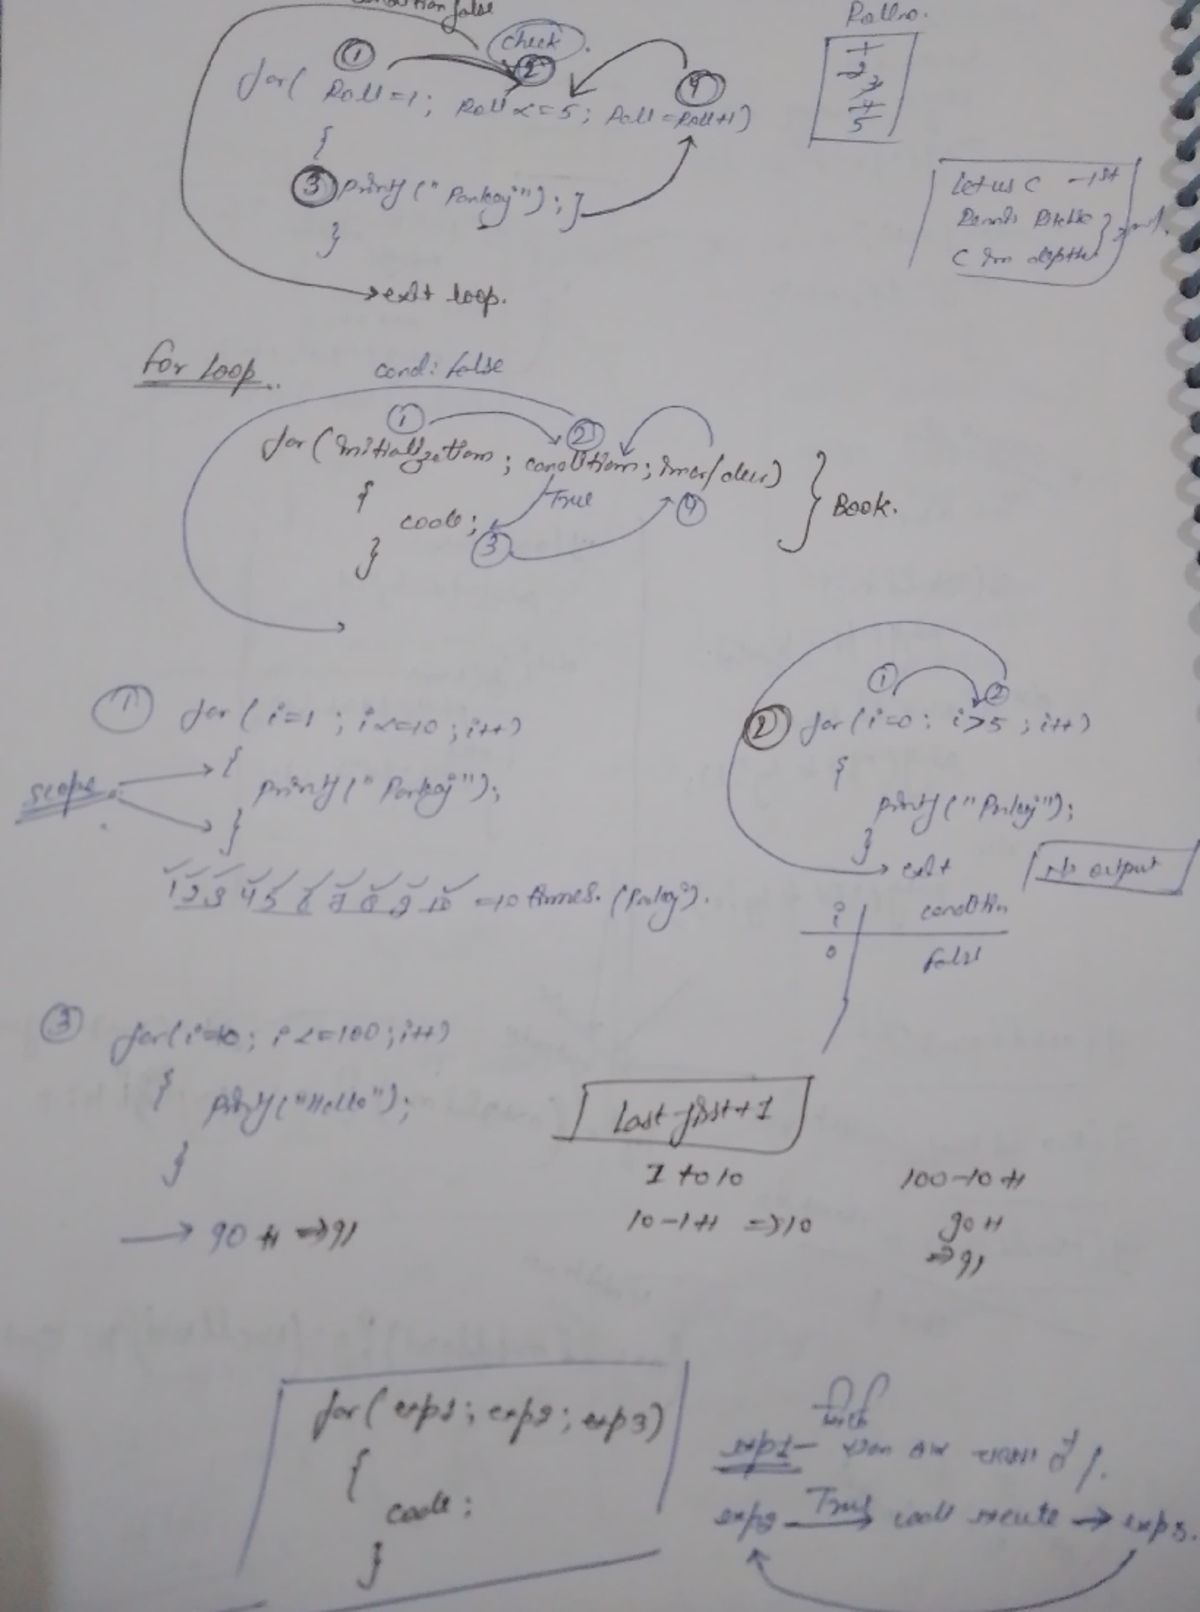 condition false
check.
① ②
④
for( Roll=1; Roll<=5; Roll=Roll+1)
{
③ printf("Pankaj"); }
}
exit loop.
Rollno.
1
2
3
4
5
Let us C - 1st
Dennis Ritchie
C In depth
For Loop
cond: false
① ②
for(initialization; condition; incr/decr)
{
True
④
code;
③
}
} Book.
① for( i=1; i<=10; i++)
{
scope
printf("Pankaj");
}
1 2 3 4 5 6 7 8 9 10 = 10 times. (Pankaj).
① ②
② for(i=0; i>5; i++)
{
printf("Pankaj");
}
exit
No output
i condition
0 false
③ for(i=10; i<=100; i++)
{
printf("Hello");
}
→ 90+1 ⇒ 91
Last-first+1
1 to 10
10-1+1 ⇒ 10
100-10+1
90+1
⇒ 91
for(exp1; exp2; exp3)
{
code;
}
सिर्फ
exp1 - एक बार चलता है।
exp2 True → code execute → exp3.